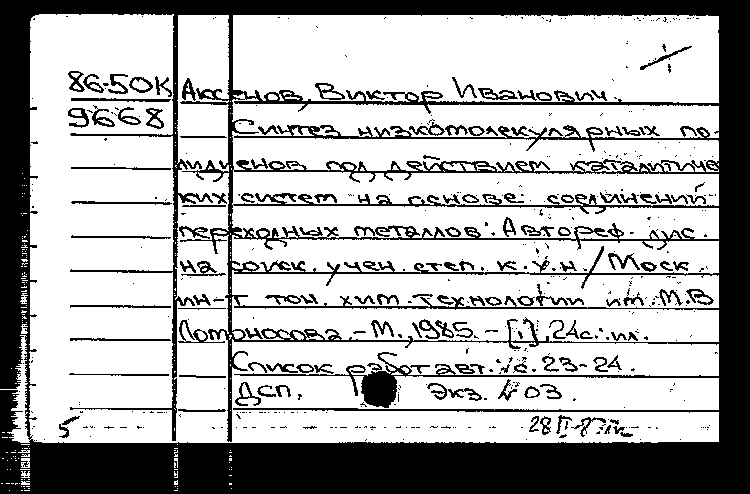 86-50К Аксенов, Виктор Иванович.
9668 Синтез низкомолекулярных по-
лидиенов под действием каталитичес
ких систем на основе соединений
переходных металлов: Автореф. дис.
на соиск. учен. степ. к.х.н. / Моск.
ин-т тон. хим. технологии им. М.В
Ломоносова. - М., 1985. - [1], 24с.: ил.
Список работ авт.: с. 23-24.
ДСП. Экз. № 03.
5